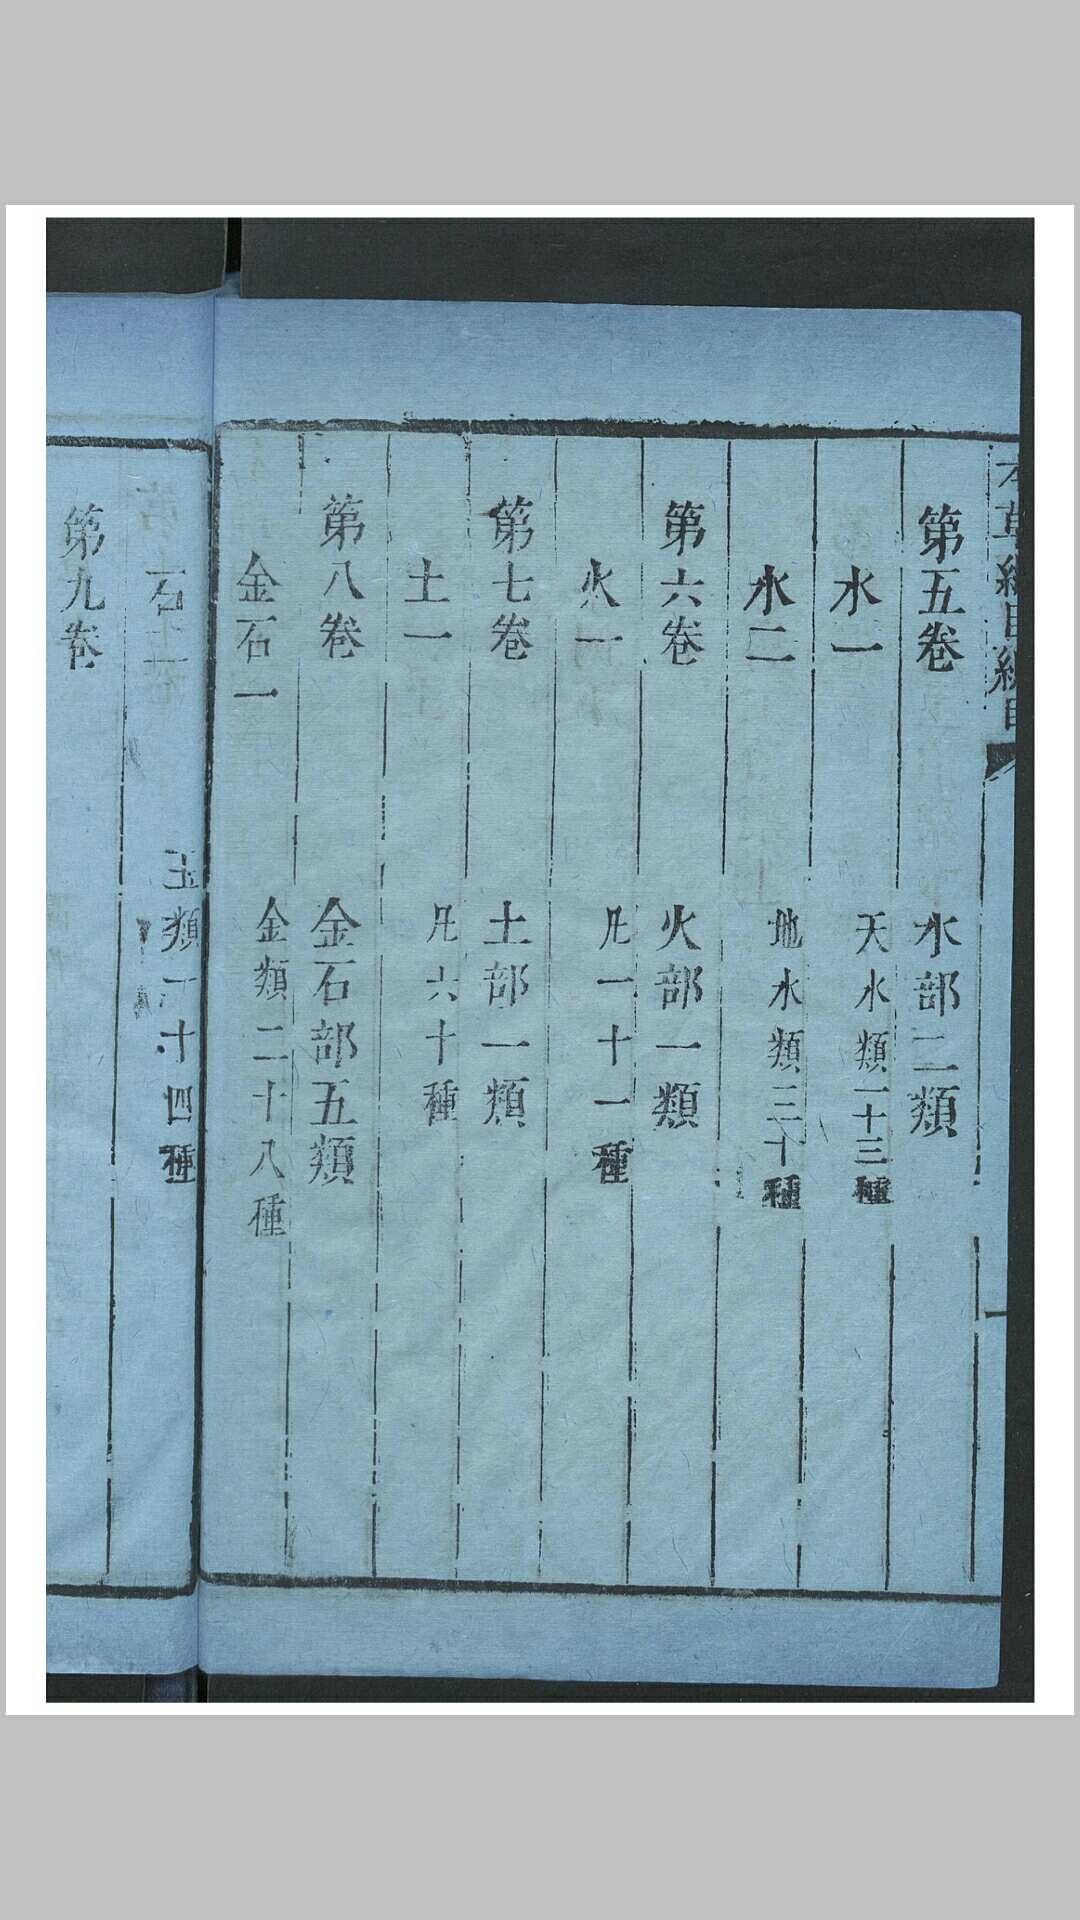 本草綱目總目
第五卷 水部二類
水一 天水類一十三種
水二 地水類三十種
第六卷 火部一類
火一 凡一十一種
第七卷 土部一類
土一 凡六十種
第八卷 金石部五類
金石一 金類二十八種
石二 玉類一十四種
第九卷